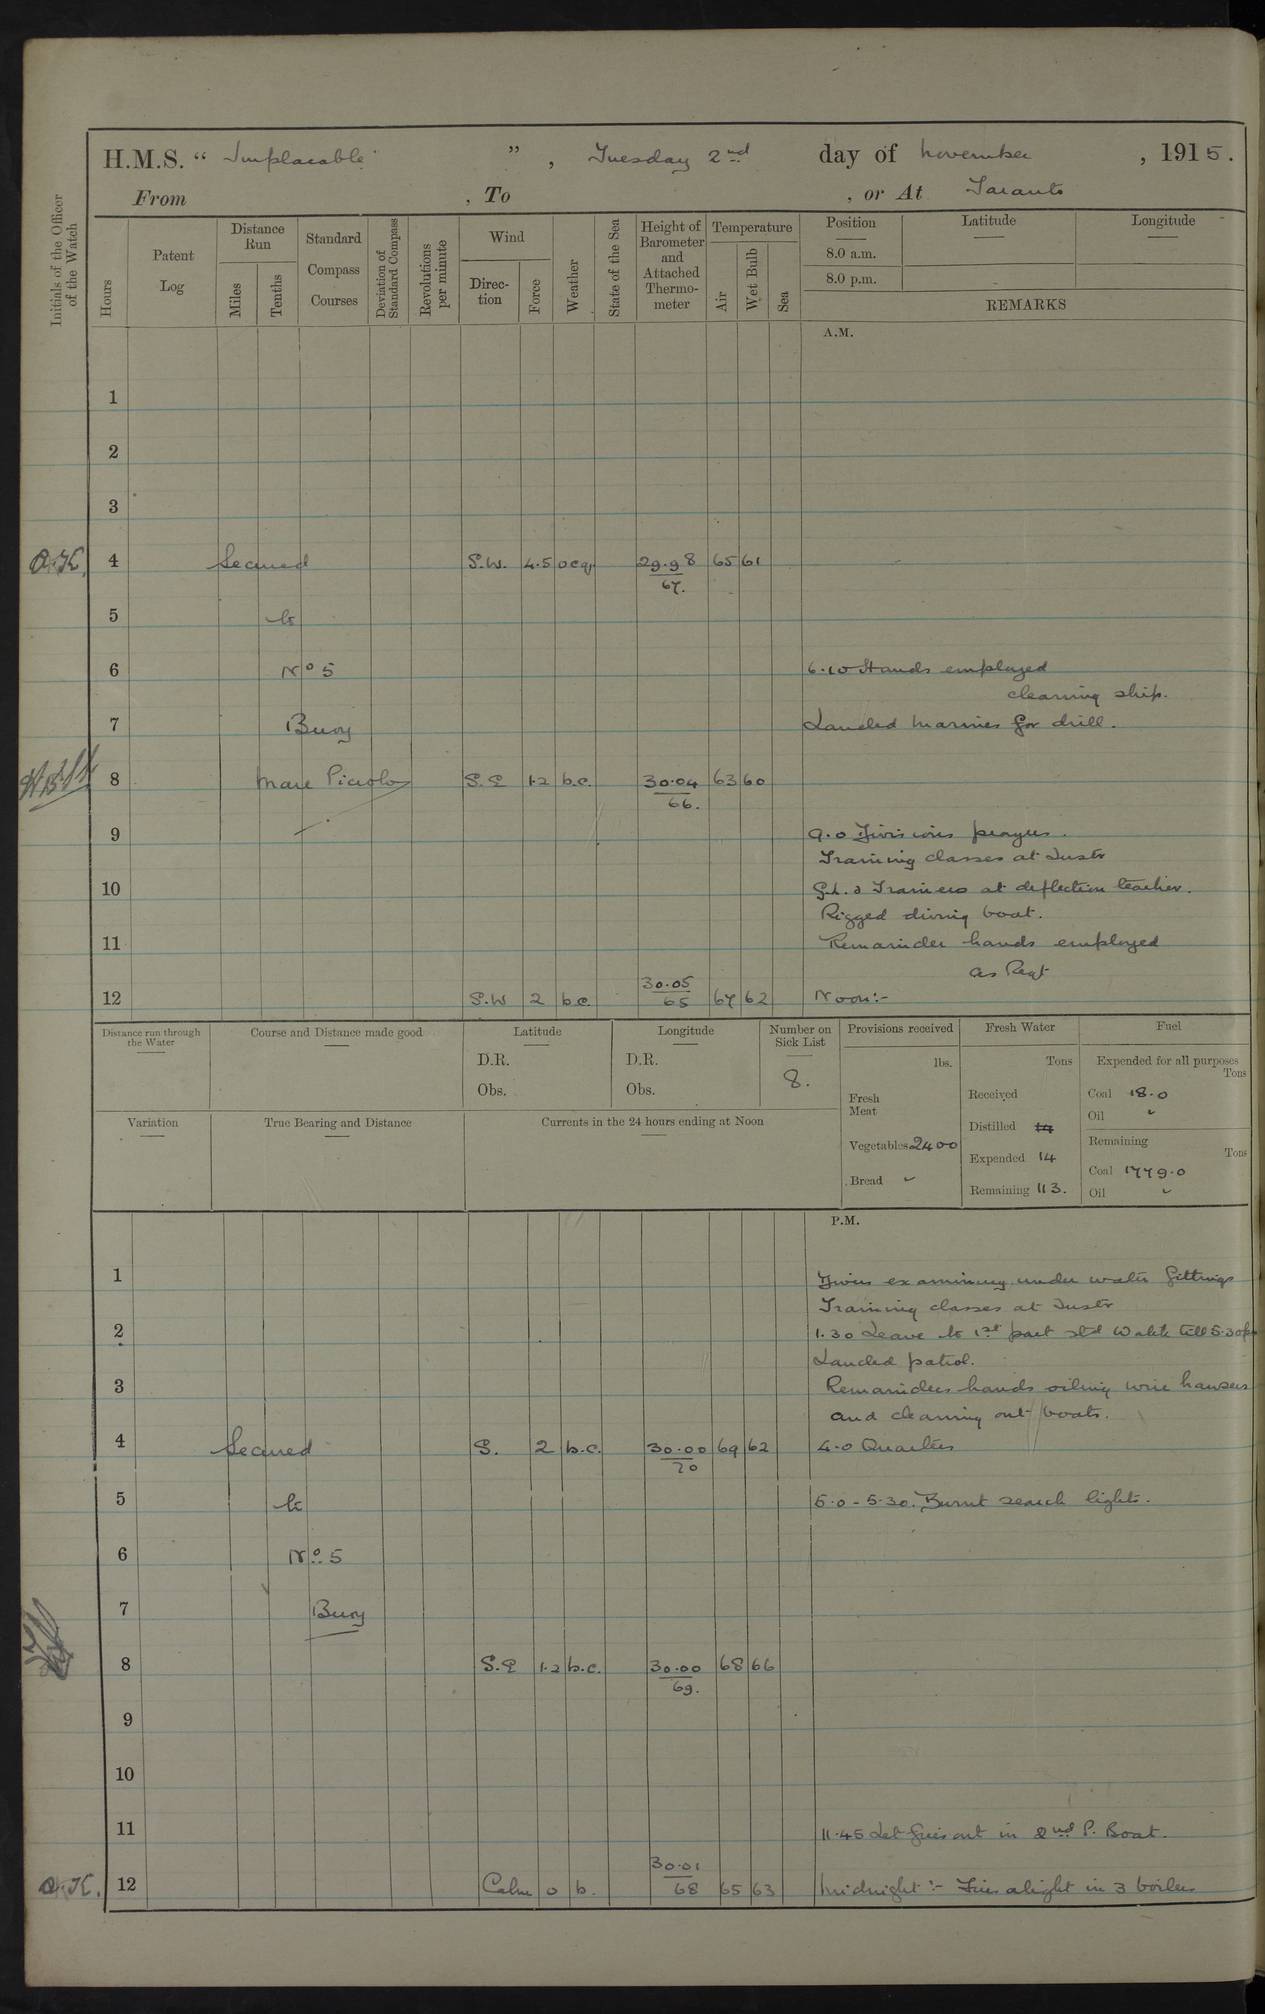 H.M.S. “ Implacable ” , Tuesday 2nd day of November , 1915.
From , To , or At Taranto
Initials of the Officer of the Watch
Hours
Patent Log
Distance Run
Miles
Tenths
Standard Compass Courses
Deviation of Standard Compass
Revolutions per minute
Wind
Direction
Force
Weather
State of the Sea
Height of Barometer and Attached Thermometer
Temperature
Air
Wet Bulb
Sea
Position Latitude Longitude
8.0 a.m.
8.0 p.m.
REMARKS
A.M.
1
2
3
4 Secured S.W. 4.5 ocq 29.98 65 61
67.
5 to
6 No 5 6.10 Hands employed
cleaning ship.
7 Buoy Landed marines for drill.
8 Mare Piccolo S.E 1.2 b.c. 30.04 63 60
66.
9 9.0 Divisions prayers.
Training classes at Instr
10 G.L. & Trainers at deflection teacher.
Rigged diving boat.
11 Remainder hands employed
as Reqt
12 S.W 2 b.c. 30.05 67 62 Noon:-
65
Distance run through the Water
Course and Distance made good
Latitude
D.R.
Obs.
Longitude
D.R.
Obs.
Number on Sick List
8.
Variation
True Bearing and Distance
Currents in the 24 hours ending at Noon
Provisions received
lbs.
Fresh Meat
Vegetables 2400
Bread
Fresh Water
Tons
Received
Distilled
Expended 14
Remaining 113.
Fuel
Expended for all purposes
Tons
Coal 18.0
Oil
Remaining
Tons
Coal 1779.0
Oil
P.M.
1 Divers examining under water fittings
Training classes at Instr
2 1.30 Leave to 1st part Watch till 5.30
Landed patrol.
3 Remainder hands oiling wire hawsers
and cleaning out boats.
4 Secured S. 2 b.c. 30.00 69 62 4.0 Quarters
70
5 to 5.0 - 5.30. Burnt search lights.
6 No. 5
7 Buoy
8 S.E 1.2 b.c. 30.00 68 66
69.
9
10
11 11.45 Let fires out in 2nd P. Boat.
12 Calm 0 b. 30.01 65 63 Midnight:- Fires alight in 3 boilers
68